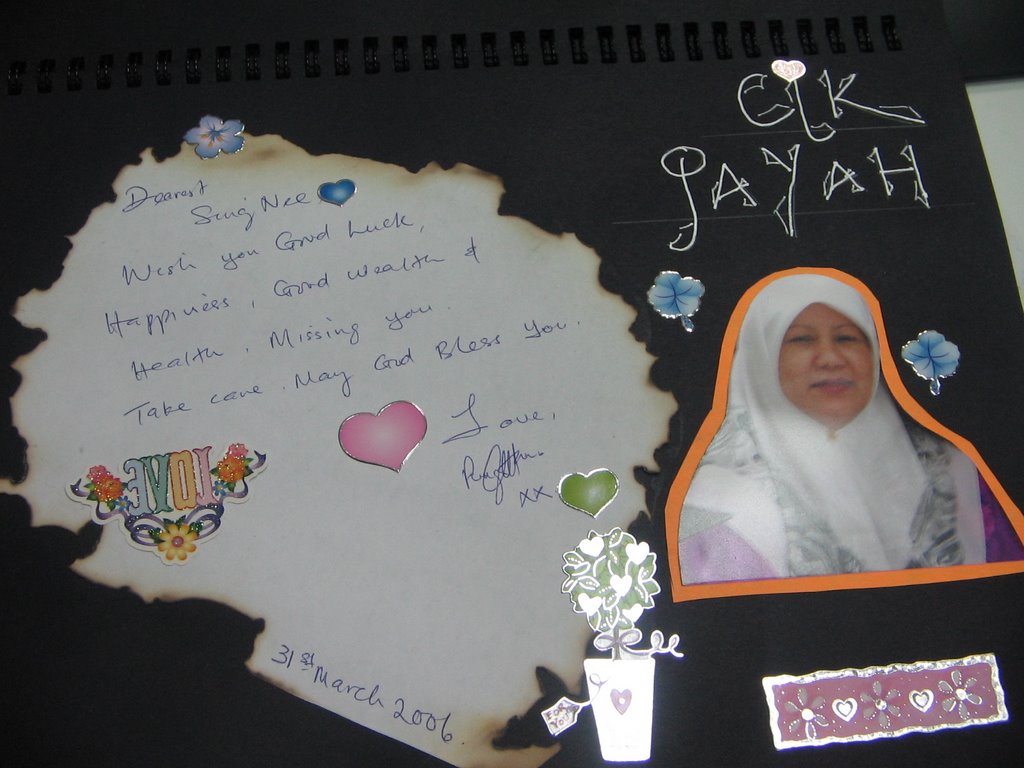 CIK
JAYAH
Dearest
Sung Nee
Wish you Good Luck,
Happiness, Good Wealth &
Health. Missing you.
Take care. May God Bless You.
Love,
xx
LOVE
31st March 2006.
FOR YOU